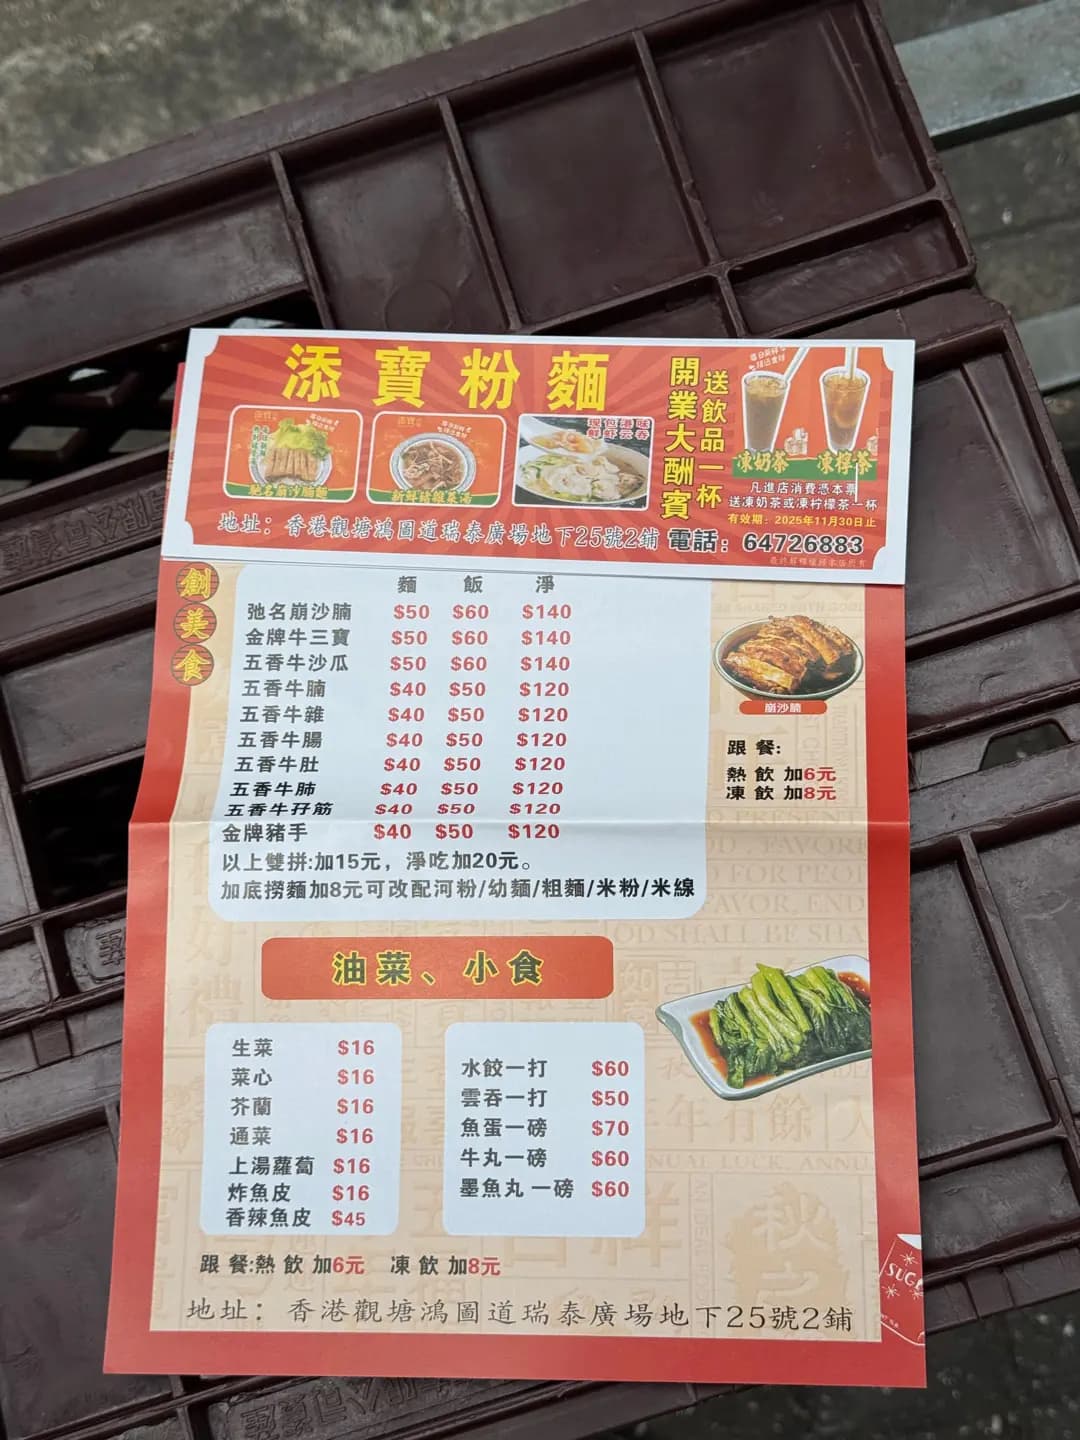 添寶粉麵
開業大酬賓
送飲品一杯
凍奶茶 凍檸茶
凡進店消費憑本票
送凍奶茶或凍柠檬茶一杯
有效期：2025年11月30日止
馳名崩沙腩麵
新鮮豬雜菜湯
現包港味
鮮虾云吞
地址：香港觀塘鴻圖道瑞泰廣場地下25號2鋪 電話：64726883
最終解釋權歸本店所有
創美食
麵 飯 淨
弛名崩沙腩 $50 $60 $140
金牌牛三寶 $50 $60 $140
五香牛沙瓜 $50 $60 $140
五香牛腩 $40 $50 $120
五香牛雜 $40 $50 $120
五香牛腸 $40 $50 $120
五香牛肚 $40 $50 $120
五香牛肺 $40 $50 $120
五香牛孖筋 $40 $50 $120
金牌豬手 $40 $50 $120
以上雙拼:加15元，淨吃加20元。
加底撈麵加8元可改配河粉/幼麵/粗麵/米粉/米線
崩沙腩
跟 餐:
熱 飲 加6元
凍 飲 加8元
油菜、小食
生菜 $16
菜心 $16
芥蘭 $16
通菜 $16
上湯蘿蔔 $16
炸魚皮 $16
香辣魚皮 $45
水餃一打 $60
雲吞一打 $50
魚蛋一磅 $70
牛丸一磅 $60
墨魚丸一磅 $60
跟 餐:熱 飲 加6元 凍 飲 加8元
地址：香港觀塘鴻圖道瑞泰廣場地下25號2鋪